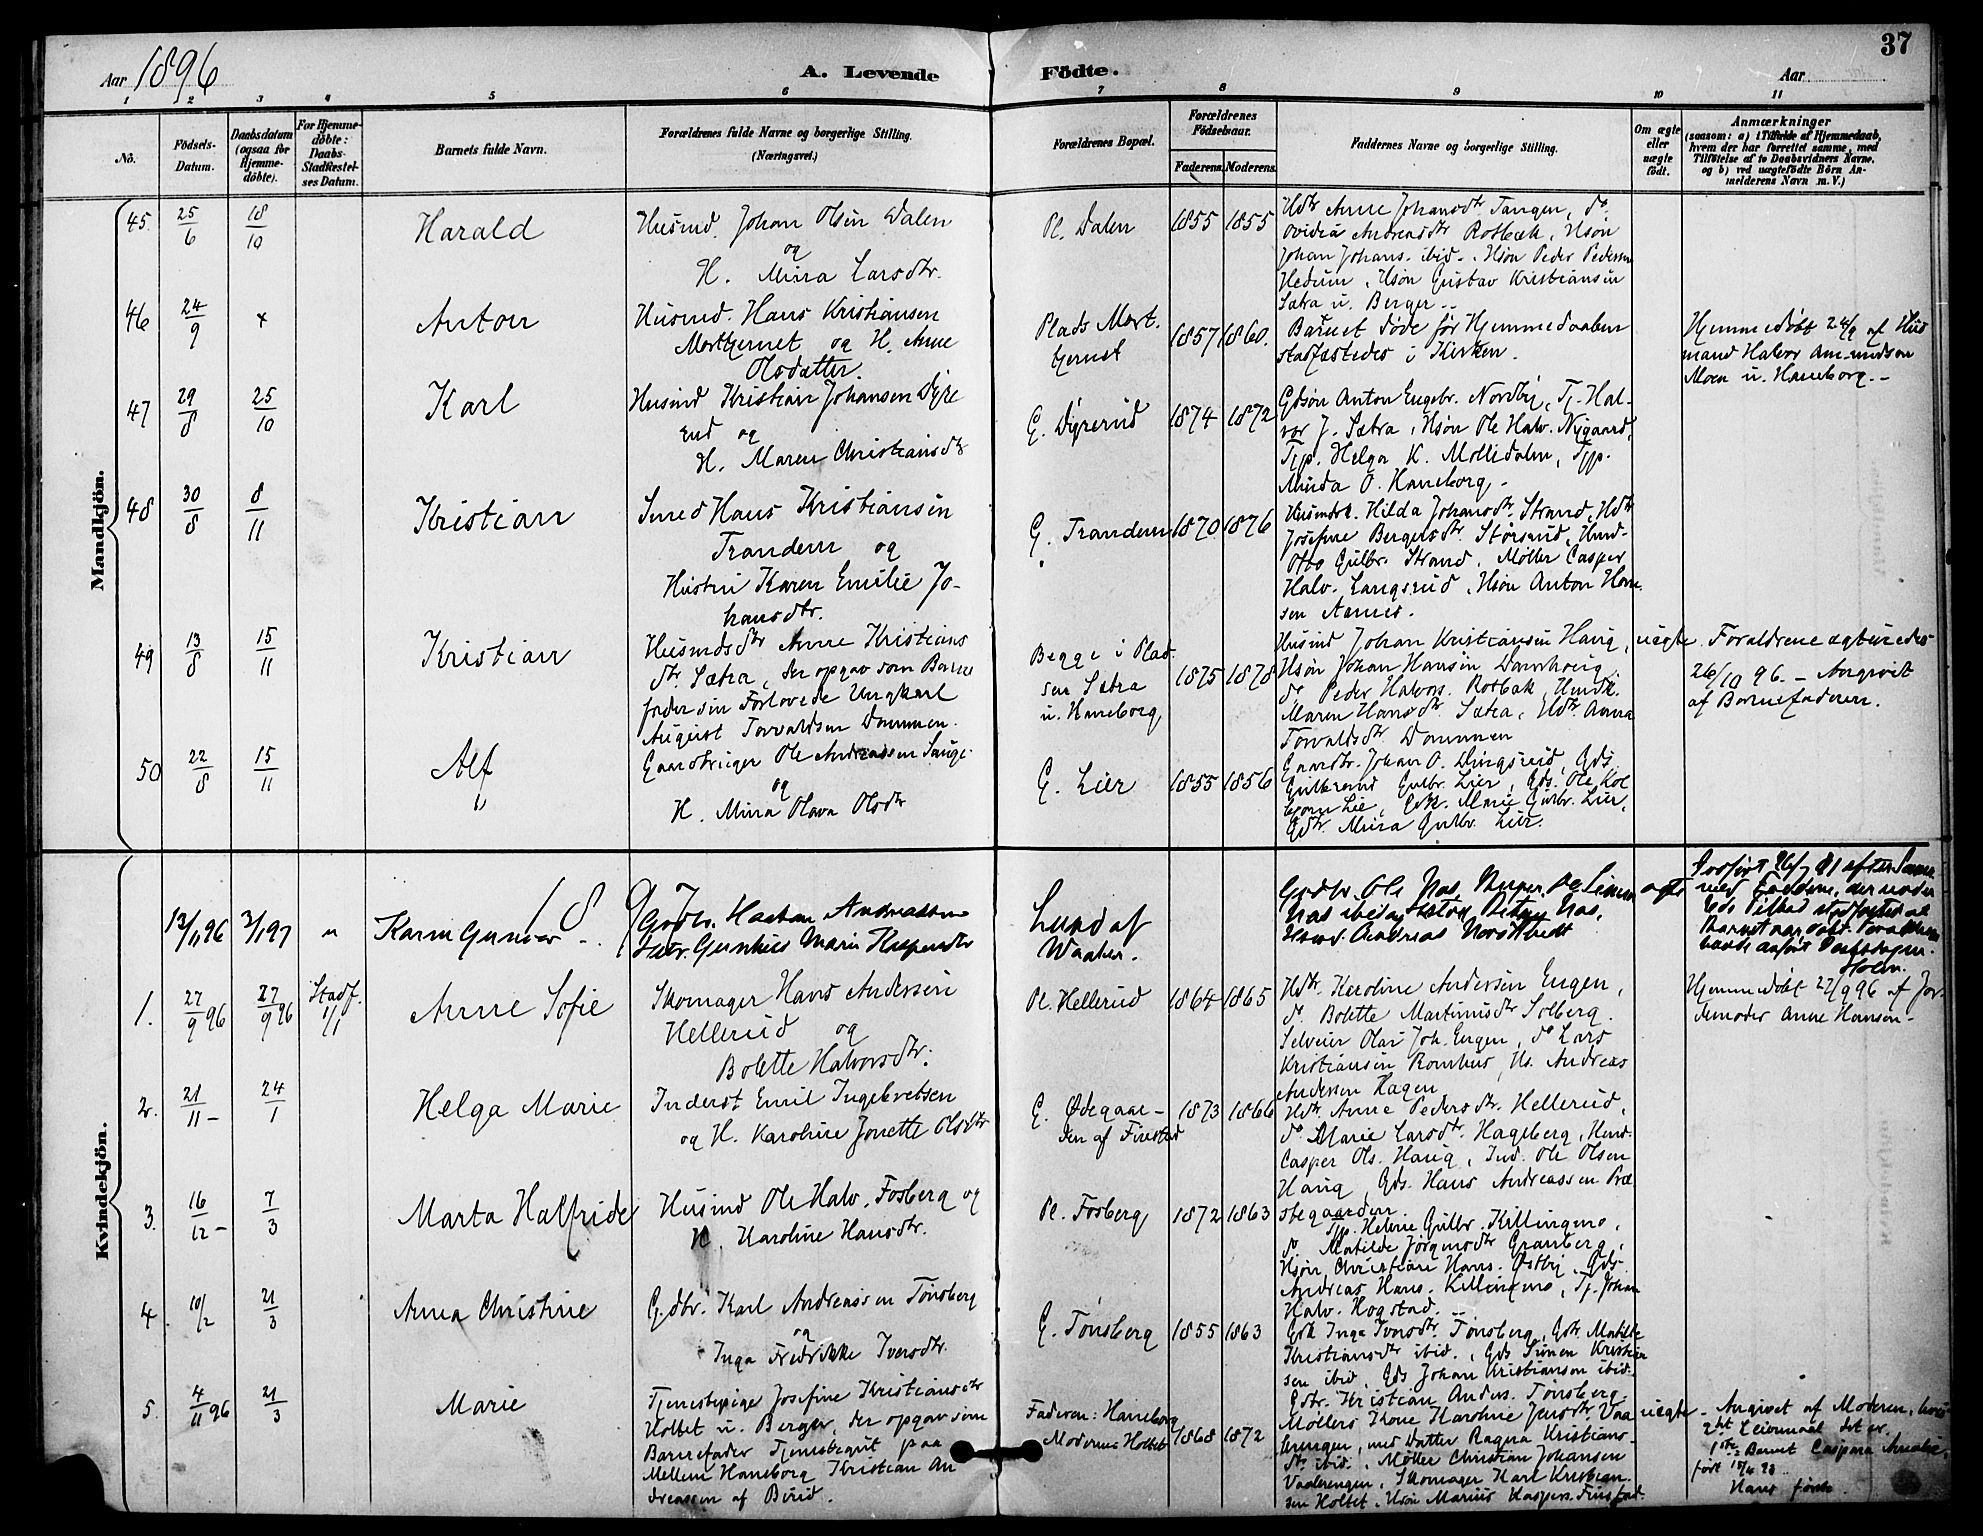 37
Aar 1896
A. Levende Födte.
Aar
1 2 3 4 5 6 7 8 9 10 11
No.
Födsels-Datum.
Daabsdatum (ogsaa for Hjemme-döbte).
For Hjemme-döbte: Daabs-Stadfæstel-ses Datum.
Barnets fulde Navn.
Forældrenes fulde Navne og borgerlige Stilling. (Næringsvei.)
Forældrenes Bopæl.
Forældrenes Födselsaar.
Faderens. Moderens.
Faddernes Navne og borgerlige Stilling.
Om ægte eller uægte født.
Anmærkninger
(saasom: a) i Tilfælde af Hjemmedaab,
hvem der har forrettet samme, med
Tilföielse af to Daabsvidners Navne,
og b) ved uægtefödte Börn An-
melderens Navn m. V.)
Mandkjön.
45. 25/6 18/10 Harald
Husmd. Johan Olsen Dalen
og
H. Mina Larsdtr.
Pl. Dalen 1855 1855
Hdtr Anne Johansdtr Tangen, do
Ovidia Andreasdtr Rotbæk, Hsøn
Johan Johans. ibid., Hsøn Peder Pedersen
Hedum, Hsøn Gustav Kristiansen
Sætra u. Berger
46 24/9 x Anton
Husmd. Hans Kristiansen
Morttjernet og H. Anne
Olsdatter.
Plads Mort.
tjernet 1857 1860.
Barnet døde før Hjemmedaaben
stadfæstedes i Kirken.
Hjemmedøbt 24/9 af Hus
mand Halvor Amundsen
Moen u. Haneborg.
47 29/8 25/10 Karl
Husmd Kristian Johansen Dyre
rud og
H. Maren Christiansdtr
G. Dyrerud 1874 1872
Gdsøn Anton Engebr. Nordby, Tj. Hal-
vor J. Sætra, Hsøn Ole Halv. Nygaard,
Tjp. Helga K. Mollidalen, Tjp.
Minda O. Haneborg
48 30/8 8/11 Kristian
Smed Hans Kristiansen
Trandem og
Hustru Karen Emilie Jo-
hansdtr.
G. Trandem 1870 1876
Husmdsk. Hilda Johansdtr. Strand, Hdtr
Josefine Bergersdtr Størsrud, Husmd.
Otto Gulbr. Strand, Møller Casper
Halv. Langsrud, Hsøn Anton Han
sen Aanes.
49 13/8 15/11 Kristian
Husmdsdtr Anne Kristians
dtr. Sætra, der opgav som Barne
fader sin Forlovede Ungkarl
August Torvaldsen Dammen.
Begge i Plad
sen Sætra
u. Haneborg 1875 1878
Husmd Johan Kristiansen Haug,
Hsøn Johan Hansen Damhaug
do Peder Halvors. Rotbæk, Husmk.
Maren Hansdtr. Sætra, Hdtr. Anna
Torvaldsdtr Dammen
uægte. Forældrene ægteviedes
26/10 96. - Angivet
af Barnefaderen.
50 22/8 15/11 Alf
Gaardbruger Ole Andreassen Lauge
og
H. Mina Olava Olsdtr
G. Lier 1855 1856
Gaardbr. Johan O. Lingsrud, Gds.
Gulbrand Gulbr. Lier, Gds. Ole Kol
bjørn Lie, Gdk. Marie Gulbr. Lier,
Gdtr. Mina Gulbr. Lier.
Kvindekjön.
1897
13/11 96 3/1 97 " Karen Gunvor
Grdbr. Haakon Andreassen
Gunhild Marie
Lund af
Waaler.
Andreas
ægte
Holm.
1. 27/9 96 27/9 96 Stadf. 1/1 Anne Sofie
Skomager Hans Andersen
Hellerud og
Bolette Halvorsdtr.
Pl. Hellerud 1864 1865
Hdtr. Karoline Andersen Engen,
do Bolette Martinusdtr Solberg.
Selveier Olai Joh. Engen, do Lars
Kristiansen Romhus, Us. Andreas
Andersen Hagen
Hjemmedøbt 27/9 96 af Jor-
demoder Anne Hansen
2. 21/11 24/1 Helga Marie
Inderst Emil Ingebretsen
og H. Karoline Jonette Olsdtr
G. Ødegaar-
den af Finstad 1873 1866
Hdtr. Anne Pedersdtr. Hellerud,
do Marie Larsdtr. Hageberg, Husmd.
Casper Ols. Haug, Ind. Ole Olsen
Haug, Gds. Hans Andreassen Præ
stegaarden
3. 16/12 7/3 Marta Halfride
Husmd Ole Halv. Fosberg og
H. Karoline Hansdtr.
Pl. Fosberg 1872 1863
Tjp. Helene Gulbr. Killingmo,
do. Matilde Jørgensdtr Granberg,
Hsøn Christian Hans. Østby, Gds.
Andreas Hans. Killingmo, Tj. Johan
Halv. Hogstad.
4. 10/2 21/3 Anna Christine
G.dbr. Karl Andreassen Tønsberg
og
Inga Fredrikke Iversdtr.
G. Tønsberg 1855 1863
Gdk Inga Iversdtr. Tønsberg, Gdtr. Matilde
Kristiansdtr ibid., Gds Simen Kristian
sen ibid., Gds Johan Kristiansen ibid.
Gdbr. Kristian Anders. Tønsberg.
5. 4/11 96 21/3 Marie
Tjenestepige Josefine Kristiansdtr
Holtet u. Berger, der opgav som
Barnefader Tjenestegut paa
Mellem Haneborg Kristian An
dreassen af Biri.
Faderen: Haneborg
Moderen: Holtet 1868 1872
Møllers Kone Karoline Jensdtr. Vaa
lerengen, med Datter Ragna Kristians-
dtr. ibid., Møller Christian Johansen
Vaalerengen, Skomager Karl Kristian-
sen Holtet, Hsøn Marius Kaspers. Finstad.
uægte. Angivet af Moderen, hvis
2det Leiermaal det er.
1ste Barnet Caspara Amalie,
født
Hans første.